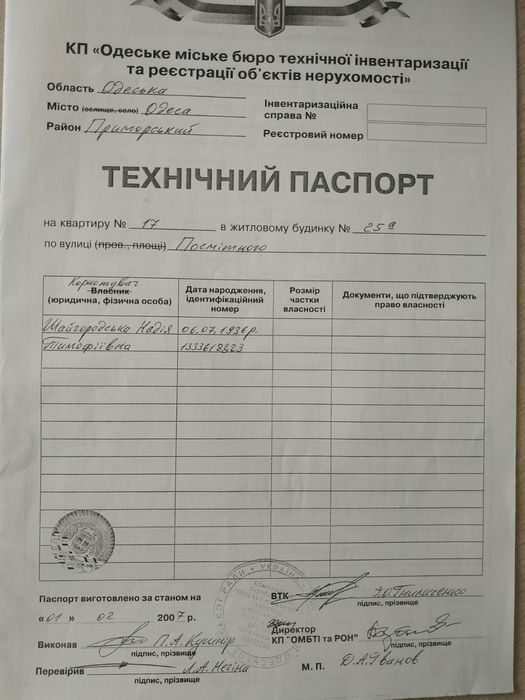 КП «Одеське міське бюро технічної інвентаризації
та реєстрації об'єктів нерухомості»
Область Одеська
Місто (селище, село) Одеса
Район Приморський
Інвентаризаційна
справа №
Реєстровий номер
ТЕХНІЧНИЙ ПАСПОРТ
на квартиру № 17 в житловому будинку № 25а
по вулиці (пров., площі) Посмітного
Користувач
Власник
(юридична, фізична особа)
Дата народження,
ідентифікаційний
номер
Розмір
частки
власності
Документи, що підтверджують
право власності
Шайгородська Надія 06.07.1936р.
Тимофіївна 1333618223
Паспорт виготовлено за станом на
«01» 02 2007 р.
Виконав П.А. Кушнір
підпис, прізвище
Перевірив Л.А. Негіна
підпис, прізвище
ВТК
підпис, прізвище
Директор
КП "ОМБТІ та РОН"
підпис, прізвище
М. П. Д.А. Іванов